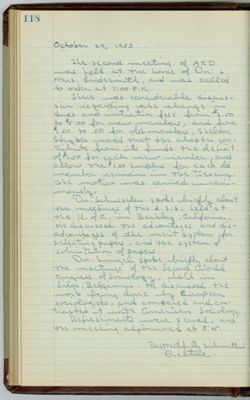 118
October 29, 1953
The second meeting of AKD
was held at the home of Dr. &
Mrs. Lindesmith, and was called
to order at 7:00 P.M.
There was considerable discus-
sion regarding the change in
dues and initiation fees from
to $ .00 for new members, and from
$1.00 to .50 for old members. Sheldon
moved that the chapter con-
tribute from its funds the deficit
of $1.00 for each new member, and
allow the $1.00 surplus for each old
member remain in the Treasury.
The motion was carried unani-
mously.
Dr. Schuessler spoke briefly about
the meetings of the A.S.S. held at
the U. of C. in Berkeley, California.
He discussed the advantages and dis-
advantages of the merit system for
selecting papers, and the system of
solicitation of papers.
Dr. spoke briefly about
the meetings of the Second World
Congress of Sociology, held in
Liege, Belgium. He discussed the
work being done by European
sociologists, and compared and con-
trasted it with American Sociology.
Refreshments were served, and
the meeting adjourned at
Respectfully Submitted